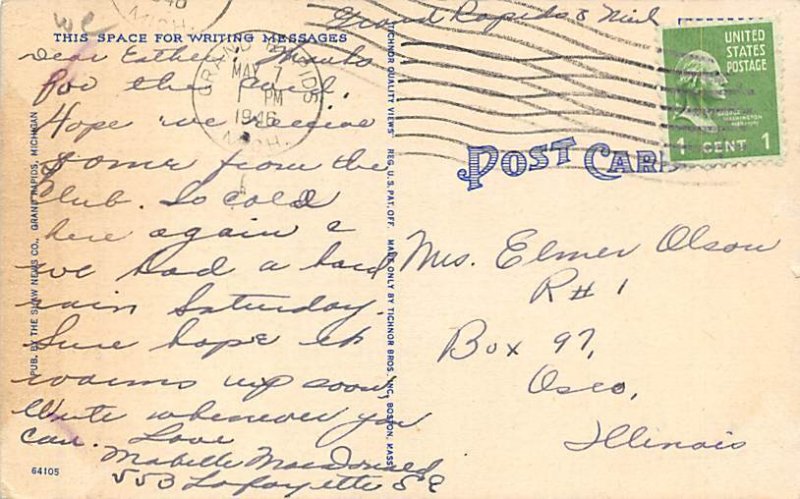 Grand Rapids 8 Mich
THIS SPACE FOR WRITING MESSAGES
Dear Esther: Thanks
for the card.
Hope we receive
some from the
Club. So cold
here again &
we had a hard
rain Saturday.
Sure hope it
warms up soon,
Write whenever you
can. Love
Mabelle MacDonald
553 Lafayette S E
64105
PUB. BY THE SHAW NEWS CO., GRAND RAPIDS, MICHIGAN
TICHNOR QUALITY VIEWS REG. U.S. PAT. OFF. MADE ONLY BY TICHNOR BROS. INC., BOSTON, MASS.
GRAND RAPIDS
MAY 7
1 PM
1946
MICH.
UNITED
STATES
POSTAGE
GEORGE
WASHINGTON
1 CENT 1
POST CARD
Mrs. Elmer Olson
R # 1
Box 97,
Osco,
Illinois